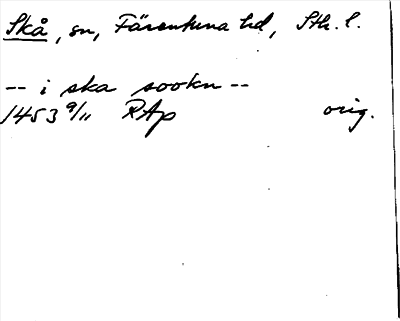 Skå, sn, Färentuna hd, Sth. l.
-- i ska sookn --
1453 9/11 RAp orig.